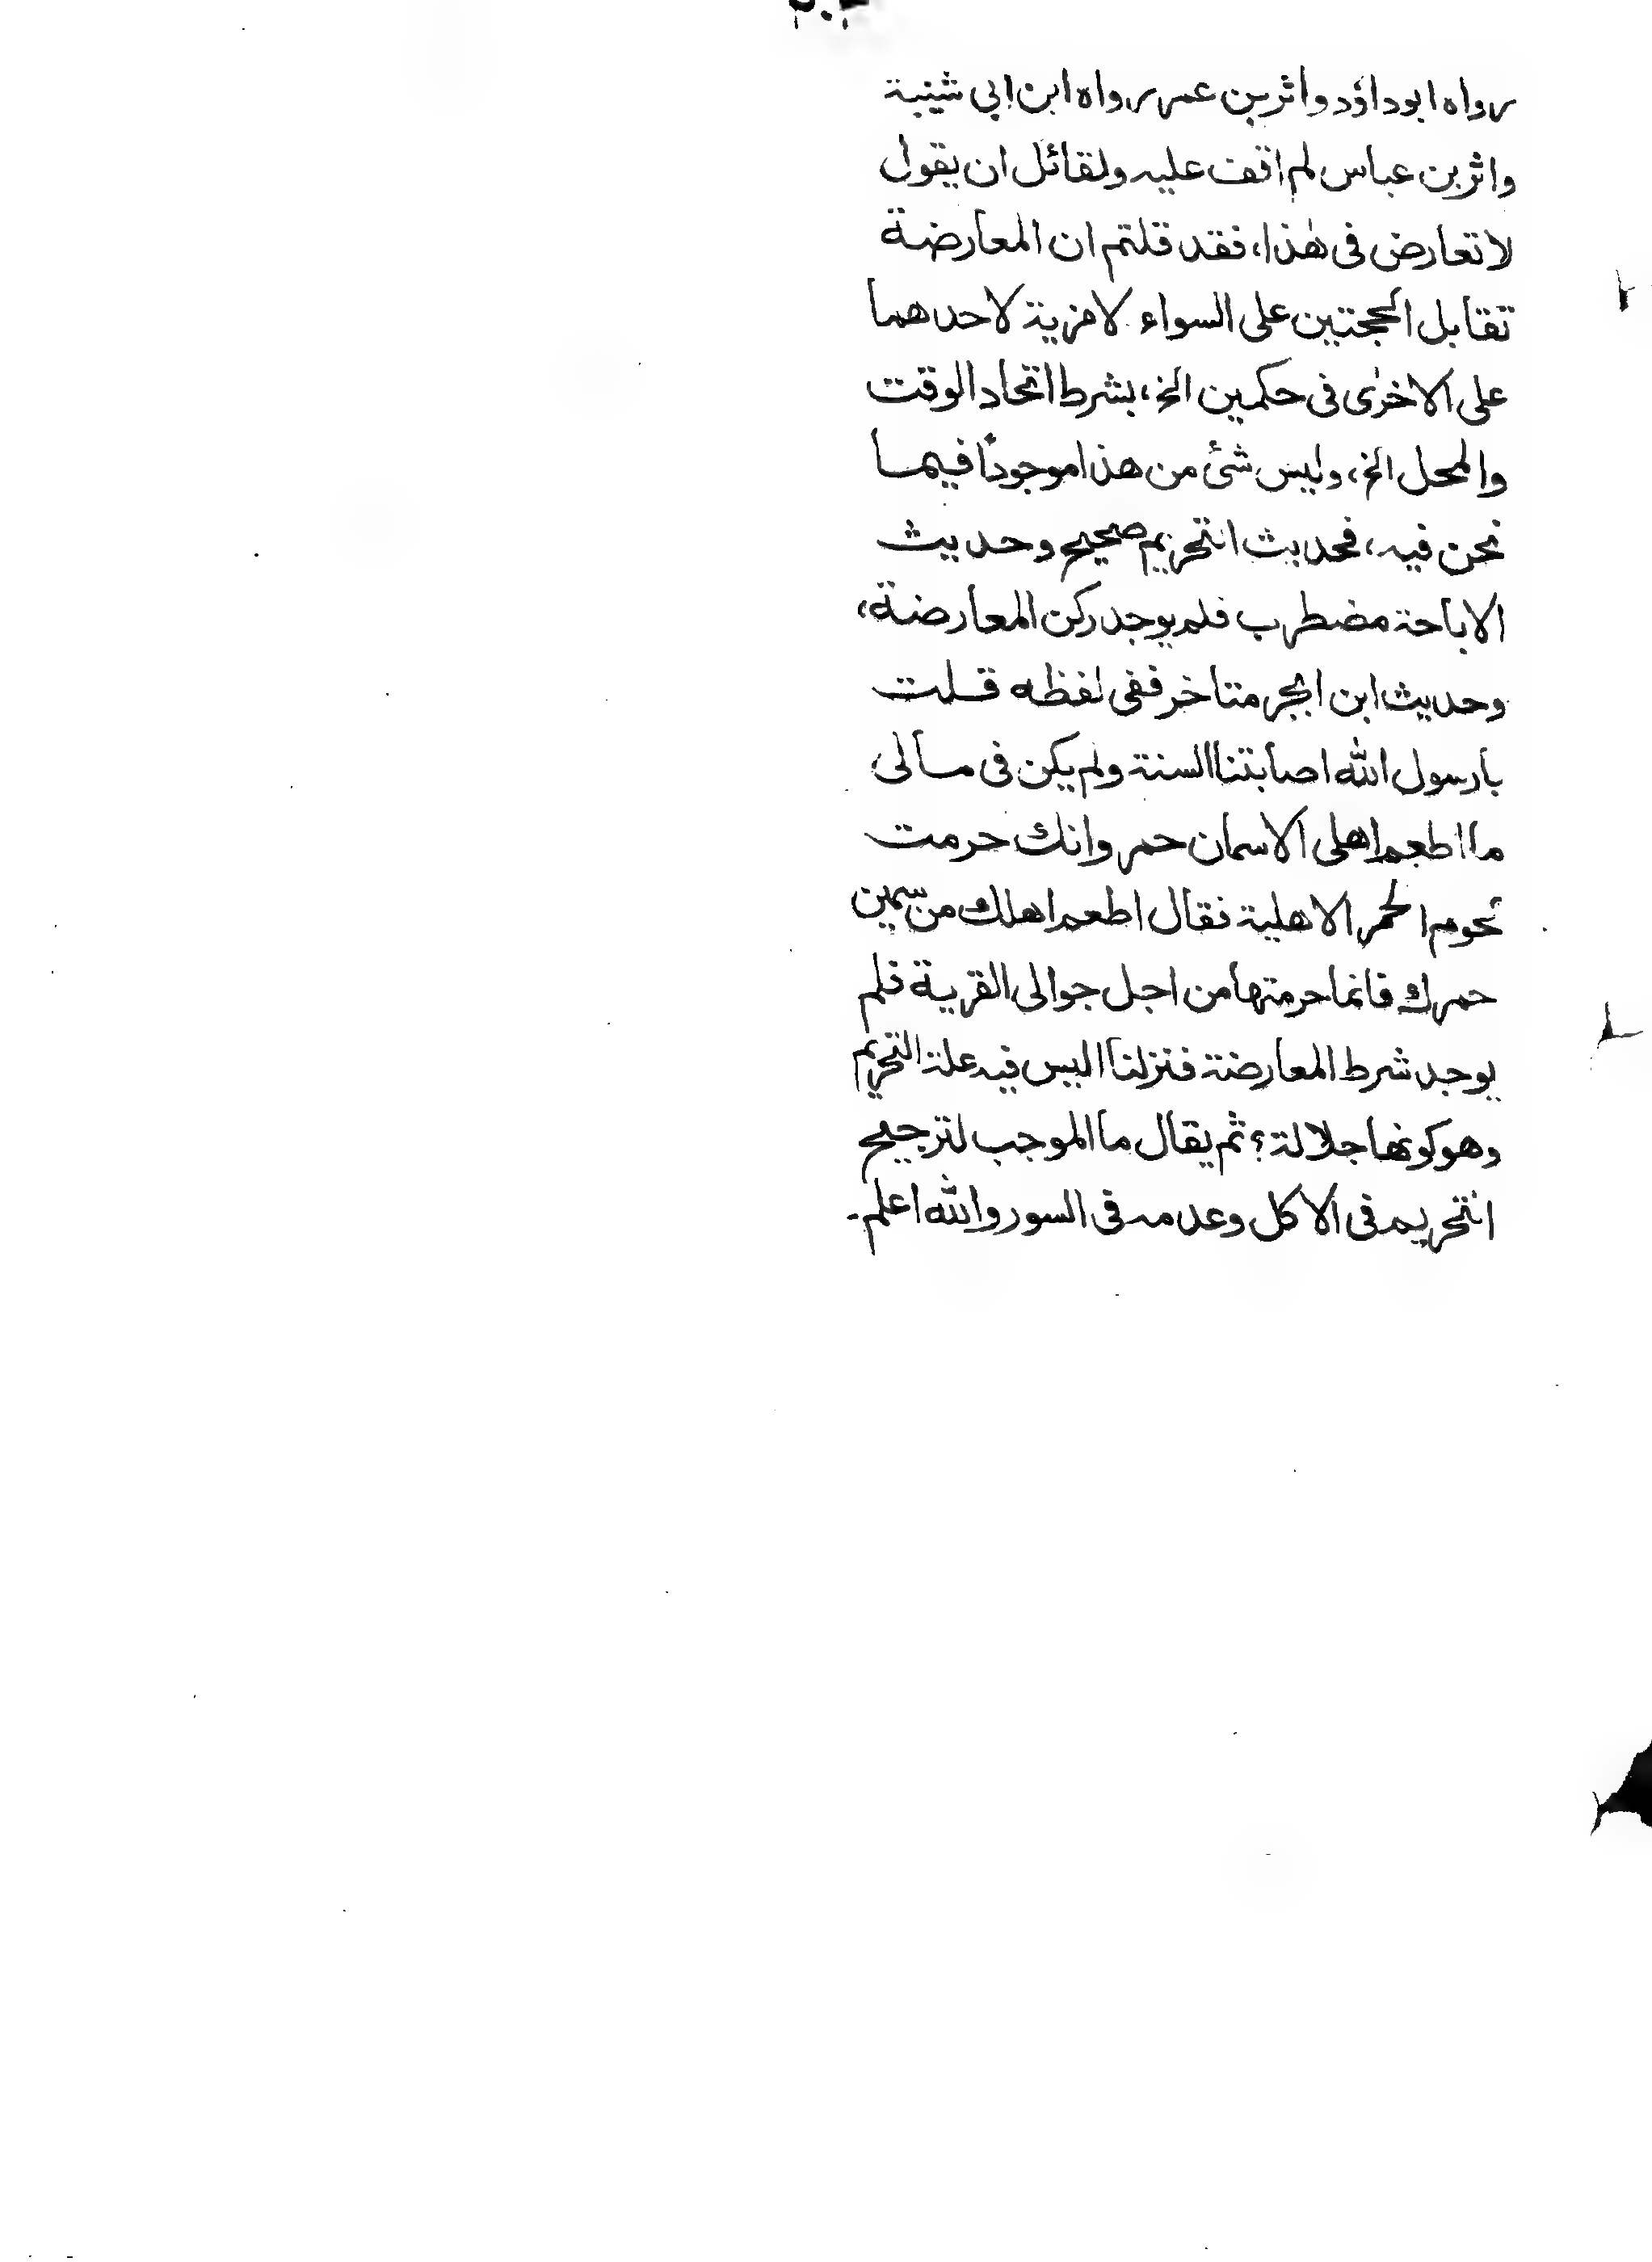 رواه ابوداؤد واثر بن عمر رواه ابن ابي شيبة
واثر بن عباس لم اقف عليه ولقائل ان يقول
لا تعارض فى هٰذا، فقد قلتم ان المعارضة
تقابل الحجتين على السواء لا مزية لاحدهما
على الاخرٰى فى حكمين الخ، بشرط اتحاد الوقت
والمحل الخ، وليس شئ من هذا موجودًا فيما
نحن فيه، فحديث التحريم صحيح وحديث
الاباحة مضطرب فلم يوجد ركن المعارضة،
وحديث ابن ابجر متاخر ففى لفظه قلت
يارسول الله اصابتنا السنة ولم يكن فى مالى
ما اطعم اهلى الا سمان حمر وانك حرمت
لحوم الحمر الاهلية فقال اطعم اهلك من سمين
حمرك فانما حرمتها من اجل جوالى القرية فلم
يوجد شرط المعارضة فنزلنا اليس فيه علة التحريم
وهو كونها جلالة؟ ثم يقال ما الموجب لترجيح
التحريم فى الاكل وعدمه فى السور والله اعلم۔